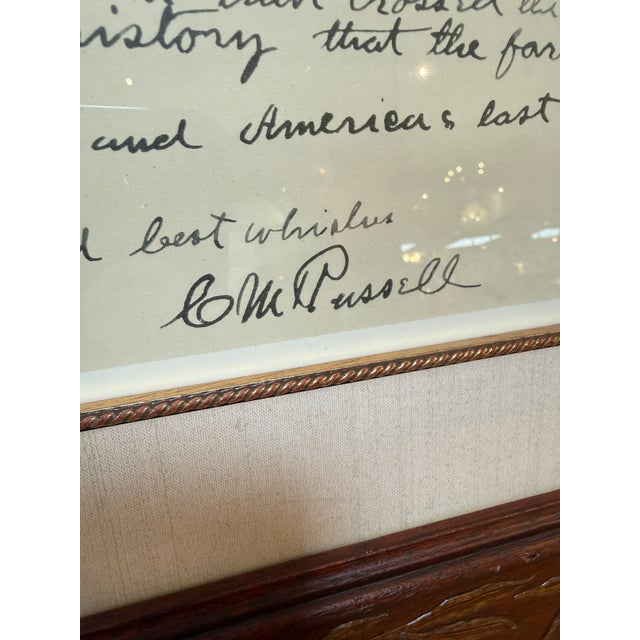 crossed the
history that the far
and Americas last
best whishes
C M Russell